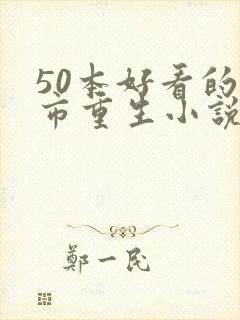 50本好看的
市重生小説
鄭一民